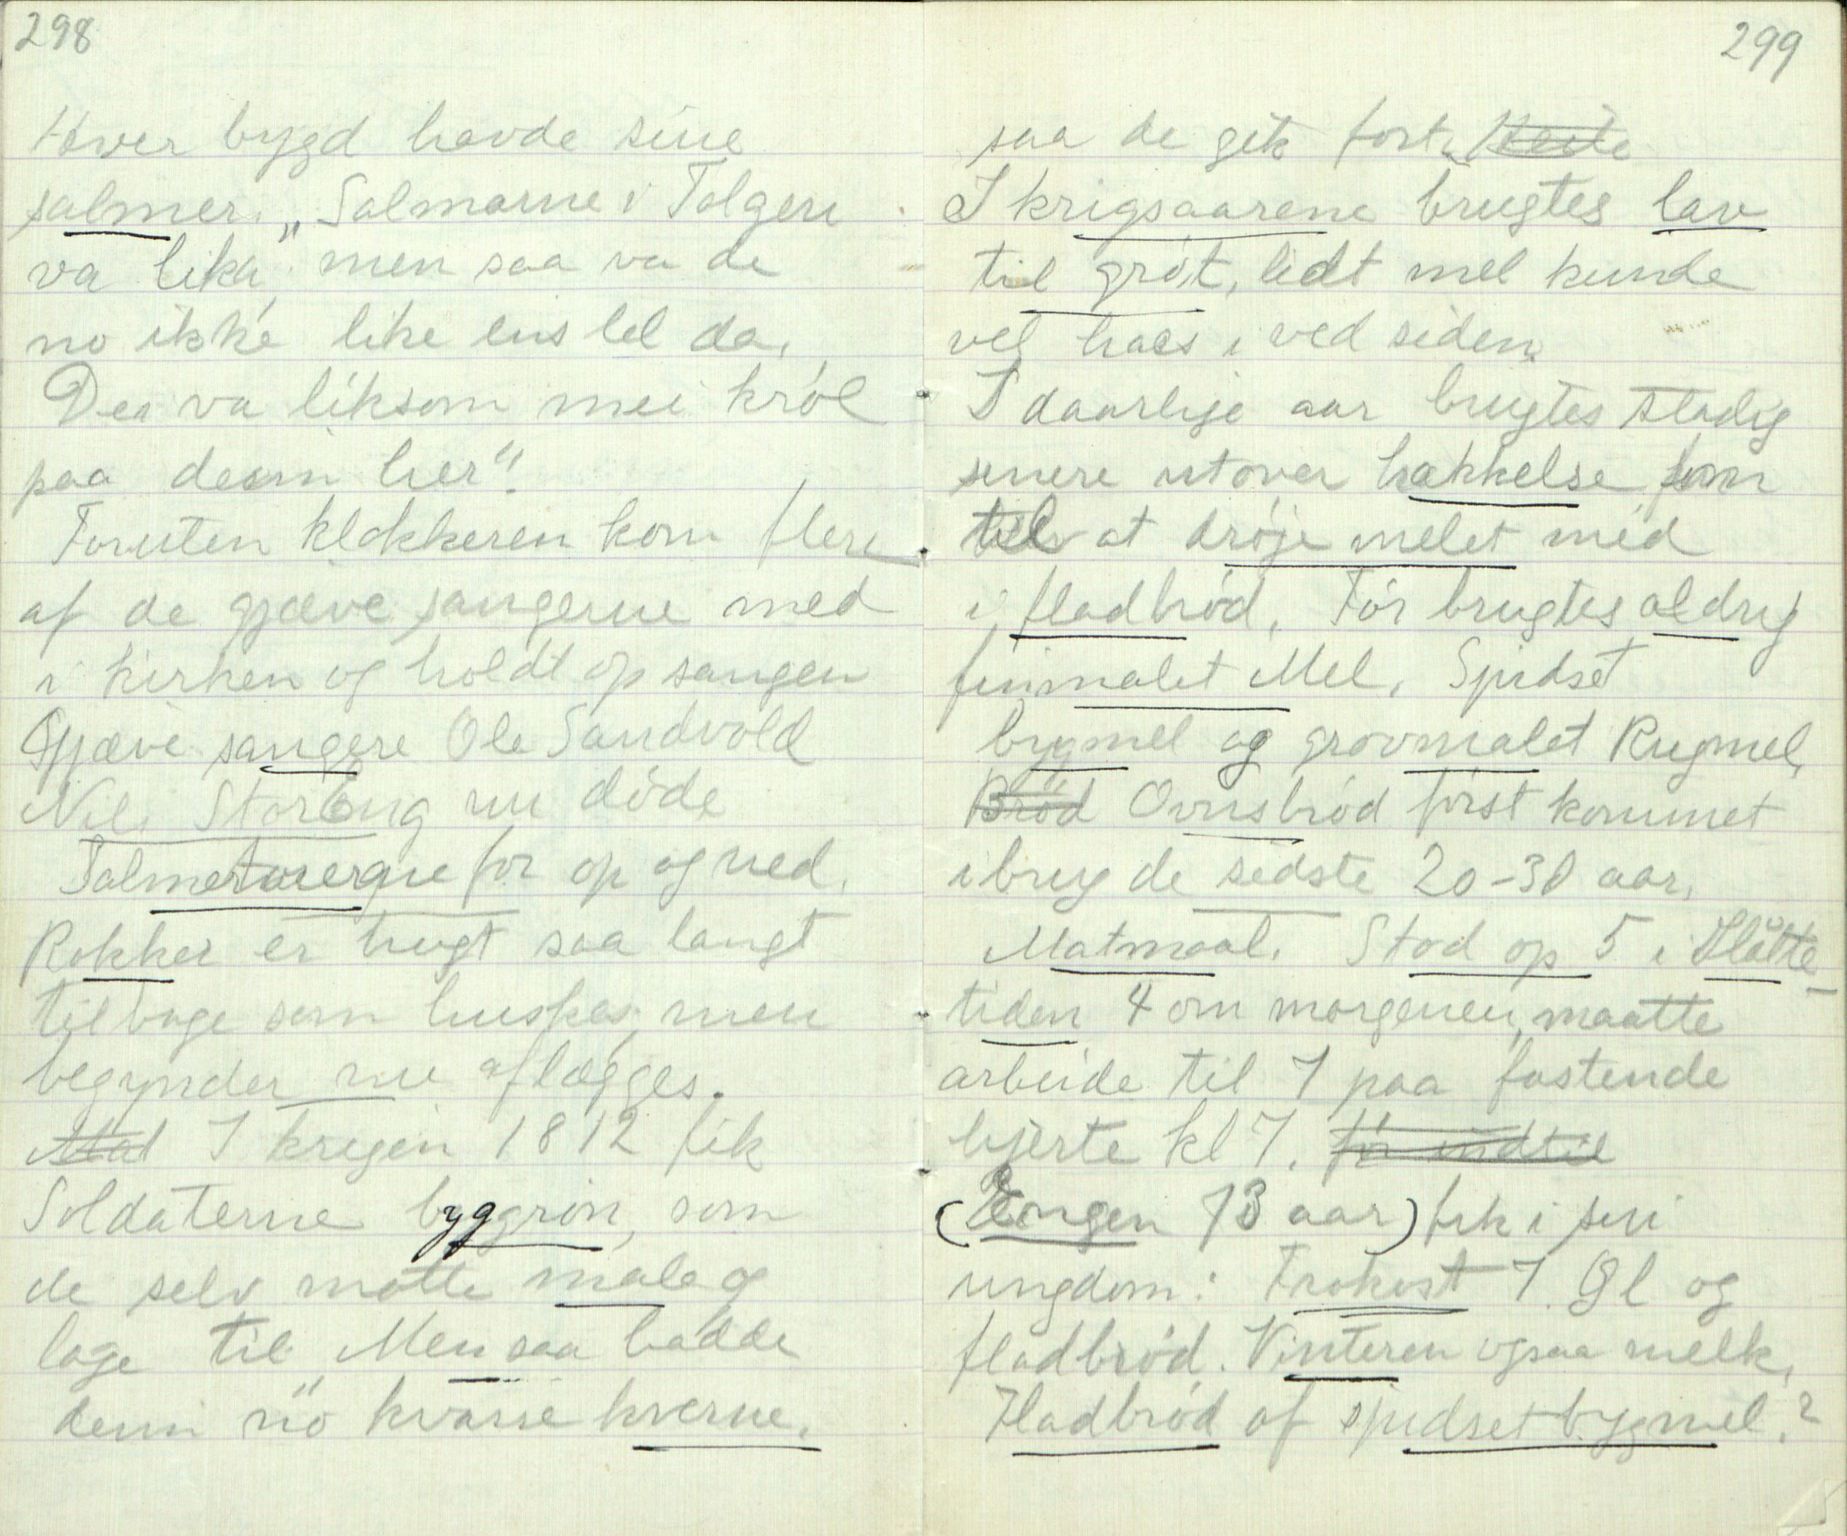 298
Hver bygd havde sine
salmer. „Salmarne i Tolgen
va lika", men saa va de
no ikke like ens lel da.
Der va liksom mei krøl
paa deem her".
Foruten klokkeren kom flere
af de gjæve sangerne med
i kirken og holdt op sangen
Gjæve sangere Ole Sandvold
Nils Storeng nu døde
Salmetonerne for op og ned.
Rokker er brugt saa langt
tilbage som huskes, men
begynder nu aflægges.
Mad I krigen 1812 fik
Soldaterne byggron, som
de selv motte male og
lage til. Men saa hadde
demi no kvasse kverne.
299
saa de gik fort.
I krigsaarene brugtes lav
til grøt, lidt mel kunde
vel haes i ved siden.
I daarlige aar brugtes stadig
senere utover hakkelse som
til at drøje melet med
i fladbrød. Før brugtes aldrig
finmalet Mel. Spidset
bygmel og grovmalet Rugmel,
Brød Ovnsbrød først kommet
i brug de sidste 20-30 aar.
Matmaal. Stod op 5 i Slåtte-
tiden 4 om morgenen, maatte
arbeide til 7 paa fastende
hjerte kl 7. før indtil
(Engen 73 aar) fik i sin
ungdom: Frokost 7. Øl og
fladbrød. Vinteren ogsaa melk.
Fladbrød af spidset bygmel.?